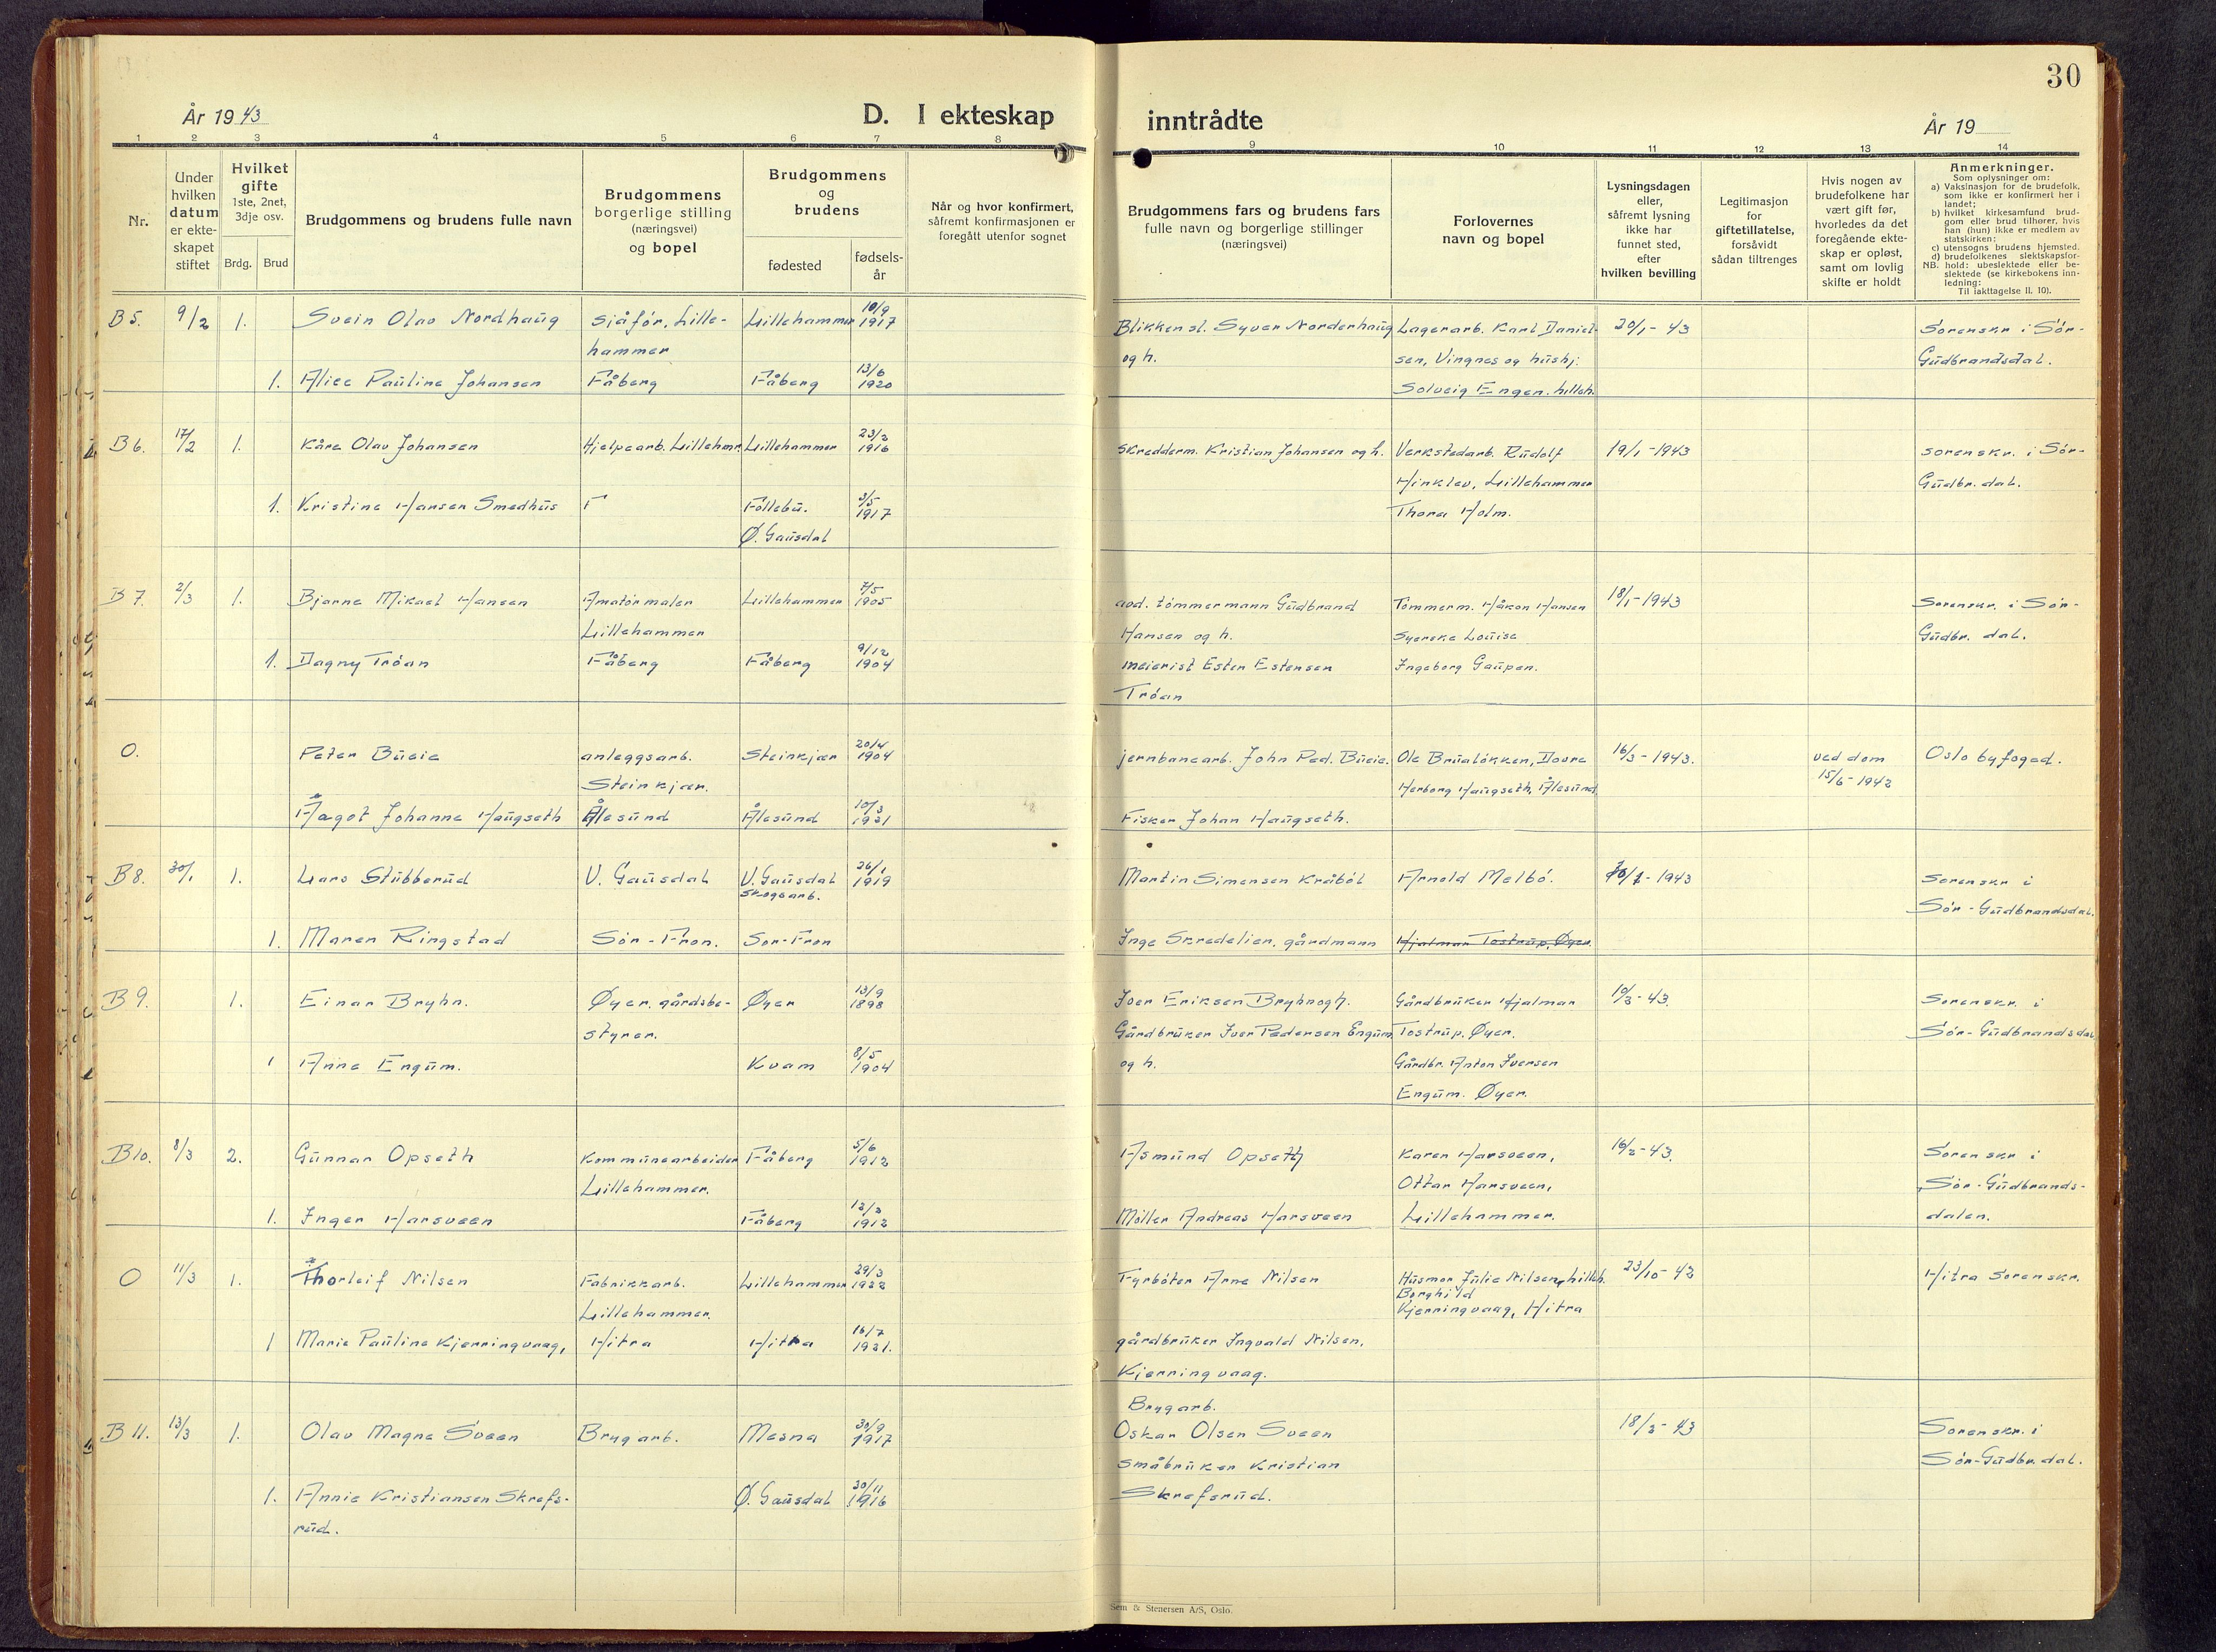 30
År 1943
D. I ekteskap inntrådte
År 19
1 2 3 4 5 6 7 8 9 10 11 12 13 14
Nr.
Under hvilken datum er ekteskapet stiftet
Hvilket gifte 1ste, 2net, 3dje osv.
Brdg. Brud
Brudgommens og brudens fulle navn
Brudgommens borgerlige stilling (næringsvei) og bopel
Brudgommens og brudens
fødested
fødselsår
Når og hvor konfirmert, såfremt konfirmasjonen er foregått utenfor sognet
Brudgommens fars og brudens fars fulle navn og borgerlige stillinger (næringsvei)
Forlovernes navn og bopel
Lysningsdagen eller, såfremt lysning ikke har funnet sted, efter hvilken bevilling
Legitimasjon for giftetillatelse, forsåvidt sådan tiltrenges
Hvis nogen av brudefolkene har vært gift før, hvorledes da det foregående ekteskap er opløst, samt om lovlig skifte er holdt
Anmerkninger.
Som oplysninger om:
a) Vaksinasjon for de brudefolk, som ikke er konfirmert her i landet;
b) hvilket kirkesamfund brudgom eller brud tilhører, hvis han (hun) ikke er medlem av statskirken;
c) utensogns brudens hjemsted.
d) brudefolkenes slektskapsforhold: ubeslektede eller beslektede (se kirkebokens innledning:
NB.
Til iakttagelse II. 10).
B 5. 9/2 1. Svein Olav Nordhaug sjåfør, Lille- Lillehammer 10/9 1917 Blikkensl. Syver Norderhaug Lagerarb. Karl Daniel- 20/1-43 Sorenskr i Sør-
hammer og h. sen, Vingnes og hushj: Gudbrandsdal.
1. Alice Pauline Johansen Fåberg Fåberg 13/6 1920 Solveig Engen. Lilleh.
B 6. 17/2 1. Kåre Olav Johansen Hjelpearb. Lilleham. Lillehammer 23/2 1916 Skredderm. Kristian Johansen og h. Verkstedarb. Rudolf 19/1-1943 sorenskr. i Sør-
Hinklev, Lillehammer Gudbr. dal.
1. Kristine Hansen Smedhus F Follebu. 3/5 1917 Thora Holm.
Ø. Gausdal
B 7. 2/3 1. Bjarne Mikael Hansen Amatørmaler Lillehammer 7/5 1905 avd. tømmermann Gudbrand Tømmerm. Håkon Hansen 18/1-1943 Sorenskr. i Sør-
Lillehammer Hansen og h. Syerske Louise Gudbr. dal.
1. Dagny Trøan Fåberg Fåberg 9/12 1904 meierist Esten Estensen Ingeborg Gaupen.
Trøan
O. Peter Bueie anleggsarb. Steinkjær 20/4 1904 jernbanearb. John Ped. Bueie. Ole Brualøkken, Dovre 16/3-1943. ved dom Oslo byfoged.
Steinkjær. Herborg Haugseth, Ålesund 15/6-1942
Aagot Johanne Haugseth Ålesund Ålesund 10/3 1921 Fisker Johan Haugseth.
B 8. 30/1 1. Lars Stubberud V. Gausdal V. Gausdal 26/1 1919 Martin Simensen Kråbøl Arnold Melbø. 1943 Sorenskr i
skogsarb. Sør-Gudbrandsdal.
1. Maren Ringstad Sør-Fron. Sør-Fron Inge Skredelien, gårdmann Hjalmar Tostrup, Øyer.
B 9. 1. Einar Bryhn. Øyer. gårdsbe- Øyer 13/9 1898 Iver Eriksen Bryhn og h. Gårdbruker Hjalmar 10/3-43. Sorenskr. i
styrer. Gårdbruker Iver Pedersen Engum Tostrup. Øyer. Sør-Gudbrandsdal
1 Anne Engum. Kvam 8/5 1904 og h. Gårdbr. Anton Iversen
Engum. Øyer.
B 10. 8/3 2. Gunnar Opseth Kommunearbeider Fåberg 5/6 1912 Asmund Opseth Karen Harsveen, 16/2-43. Sorenskr i
Lillehammer. Ottar Harsveen, Sør-Gudbrands-
1. Inger Harsveen Fåberg 12/3 1912 Møller Andreas Harsveen Lillehammer. dalen.
O 11/3 1. Thorleif Nilsen Fabrikkarb. Lillehammer 29/3 1922 Fyrbøter Arne Nilsen Husmor Julie Nilsen, Lilleh. 23/10-42 Hitra Sorenskr.
Lillehammer. Borghild
Kjerringvaag, Hitra
1 Marie Pauline Kjerringvaag, Hitra Hitra 16/7 1921. gårdbruker Ingvald Nilsen,
Kjerringvaag.
Brygarb.
B 11. 13/3 1. Olav Magne Sveen Brygarb. Mesna 30/9 1917 Oskar Olsen Sveen 18/2-43 Sorenskr. i
småbruker Kristian Sør-Gudbr. dal.
1. Annie Kristiansen Skrefs- Ø. Gausdal 30/11 1916 Skrefsrud.
rud.
Sem & Stenersen A/S, Oslo.